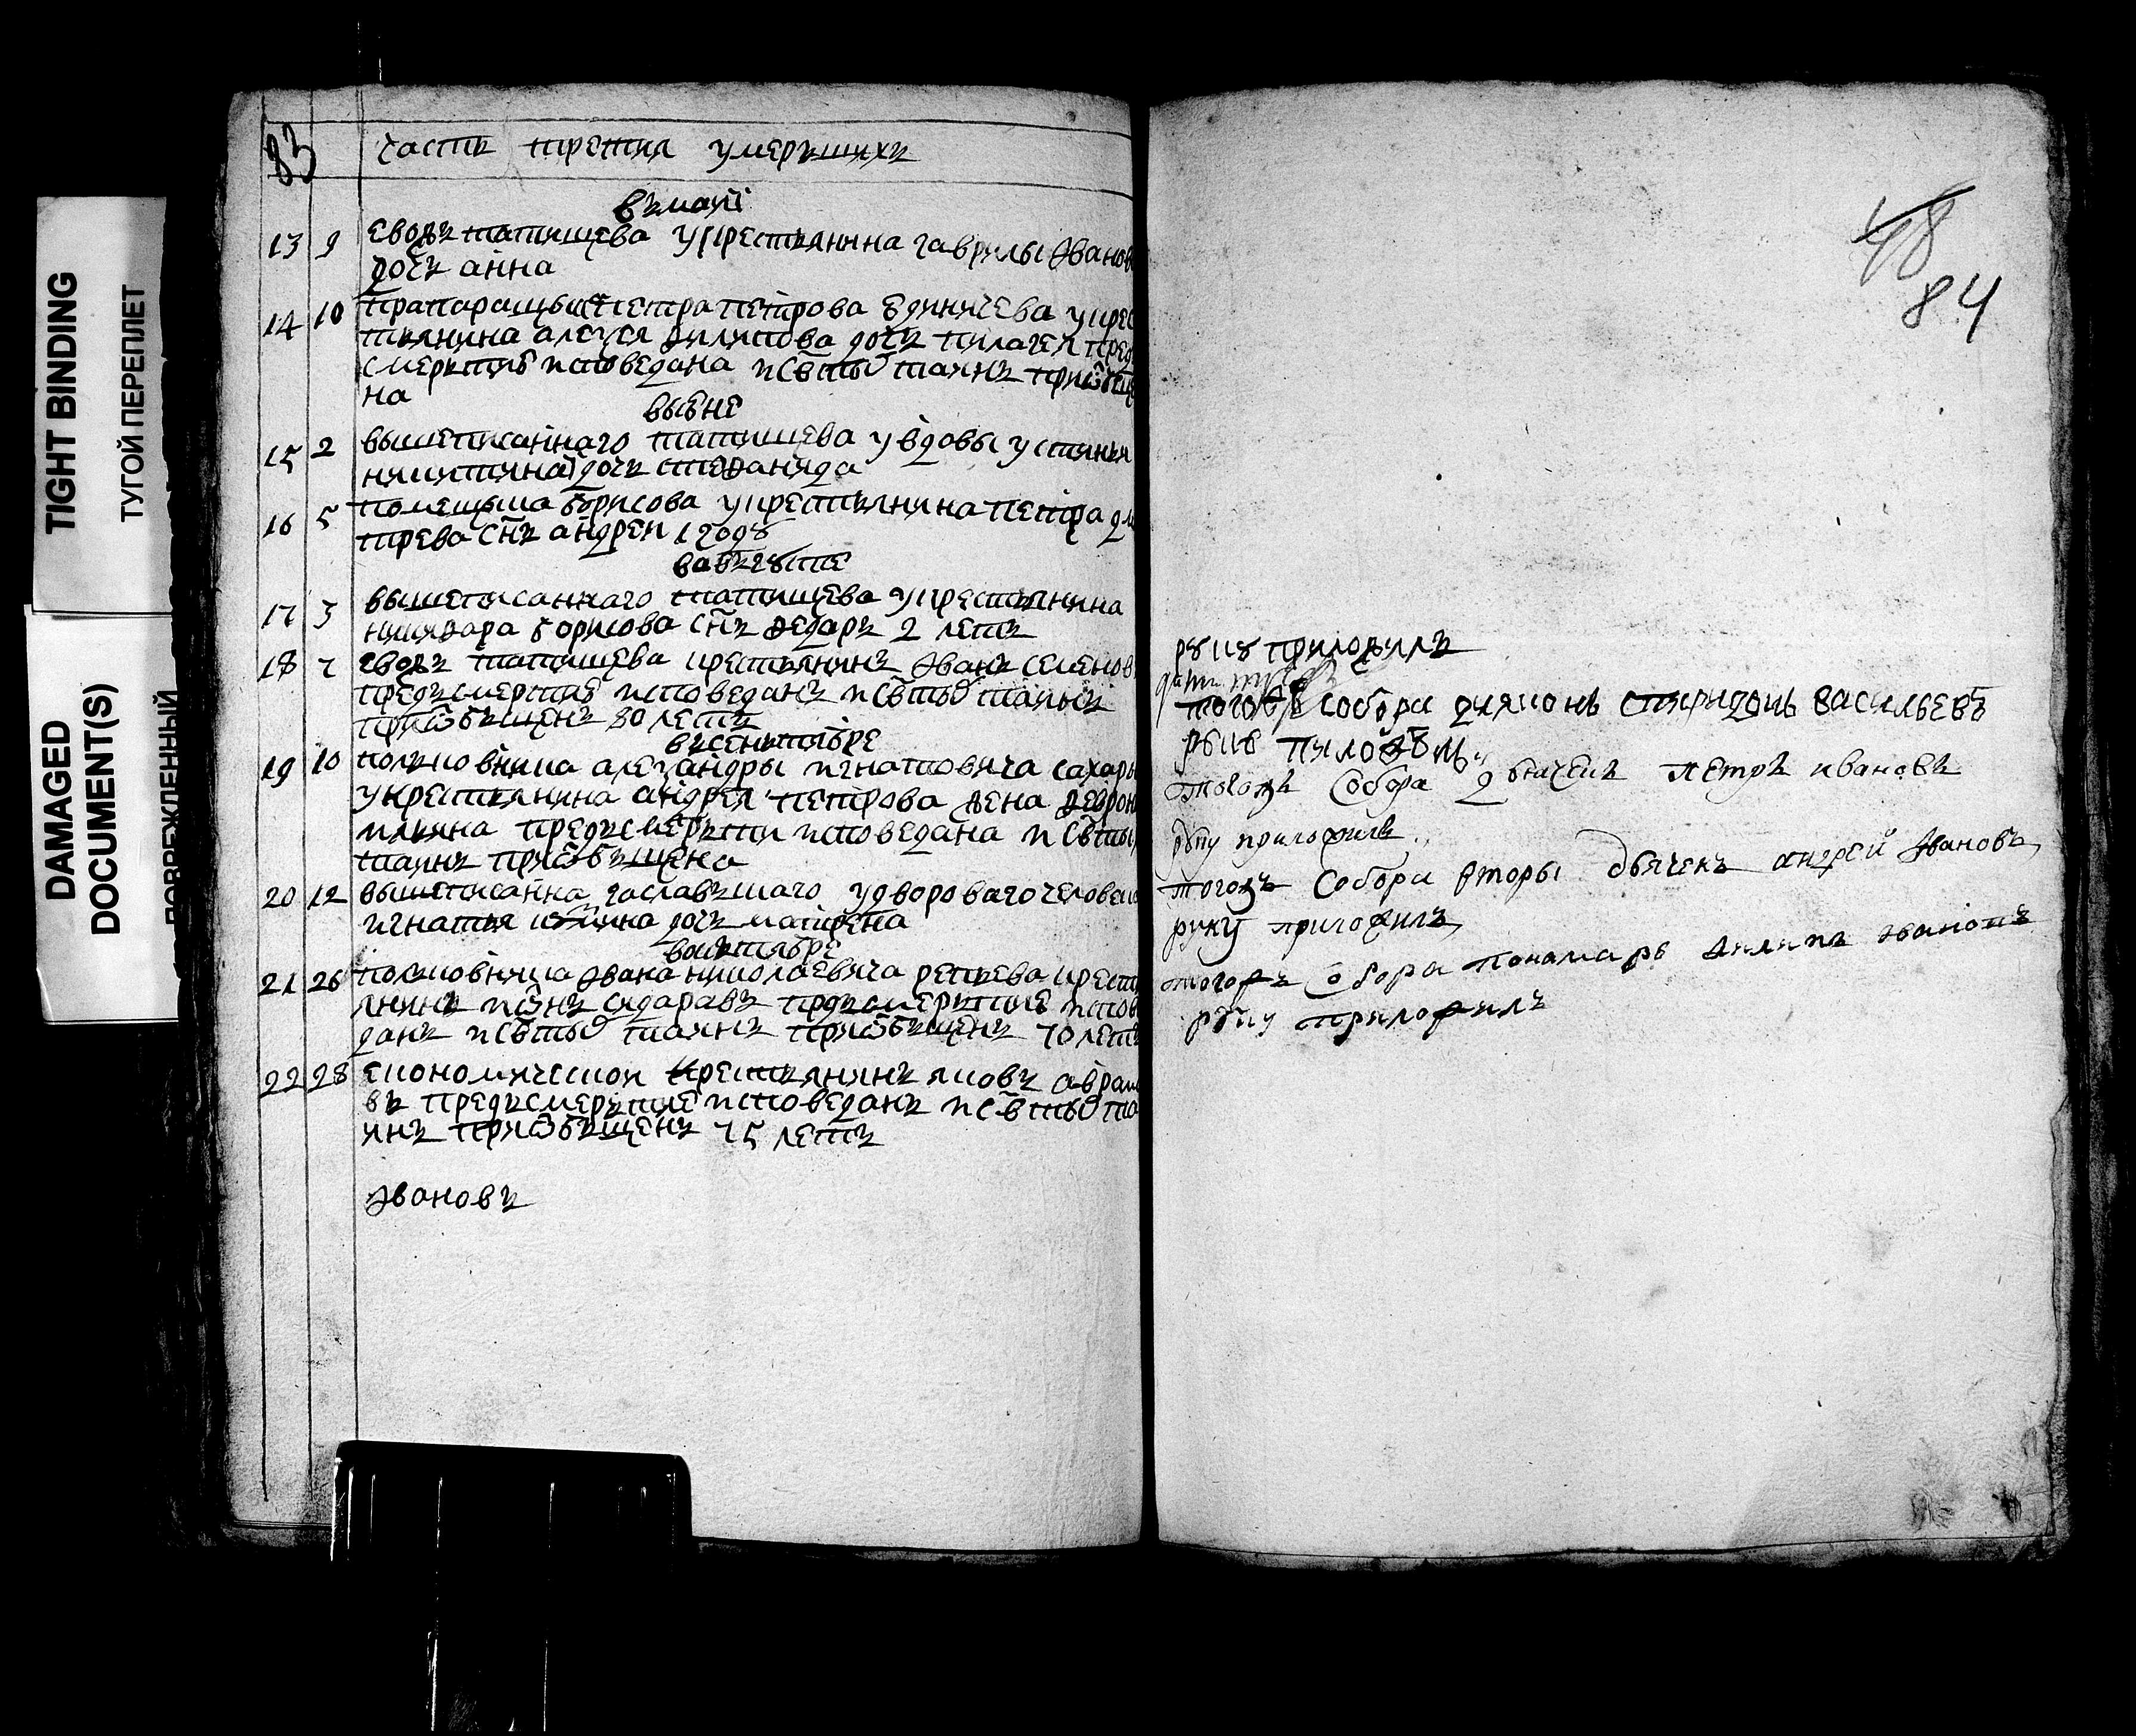 TIGHT BINDING
ТУГОЙ ПЕРЕПЛЕТ
DAMAGED
DOCUMENT(S)
ПОВРЕЖДЕННЫЙ
83
часть третия умершихъ
въ маїи
13 9 евожъ татищева у крестьянина гаврилы Ивано
дочь анна
14 10 прапаращика петра петрова у крес
тьянина алеѯея филипова дочь пелагея пред
смертию исповедана и стыхъ таинъ приобще
на
въ июне
15 2 вышеписаннаго татищева у вдовы устиньи
никитиной дочь стефанида
16 5 помещика борисова у крестьянина петра дм
трева снъ андреи 1 году
въ августе
17 3 вышеписаннаго татищева у крестьянина
никифара борисова снъ федаръ 2 летъ
18 7 евожъ татищева крестьянинъ Иванъ семенов
предъ смертию исповеданъ и стыхъ таинъ
приобъщенъ 80 летъ
въ сентябре
19 10 полковника алеѯандры игнатовича сахары
у крестьянина андрея петрова жена феврон
предъ смерьти исповедана и стыхъ
таинъ приобъщена
20 12 вышеписанна у двороваго человека
игнатья дочь матрена
въ октябре
21 26 полковника Ивана николаевича репьева крест
янинъ сидаравъ предъ смертию испов
данъ и стыхъ таинъ приобъщенъ 70 летъ
22 28 економическои крестьянинъ яковъ аврам
въ предъ смертию исповеданъ и стыхъ та
инъ приобъщенъ 75 летъ
Ивановъ
48
84
руку приложилъ
тогожъ собора дияконъ спиридонъ васильевъ
руку
тогожъ собора дьячекъ петръ ивановъ
руку приложилъ
тогожъ собора вторы дьячекъ андрей Ивановъ
руку приложилъ
тогожъ собора понамарь филипъ Ивановъ
руку приложилъ